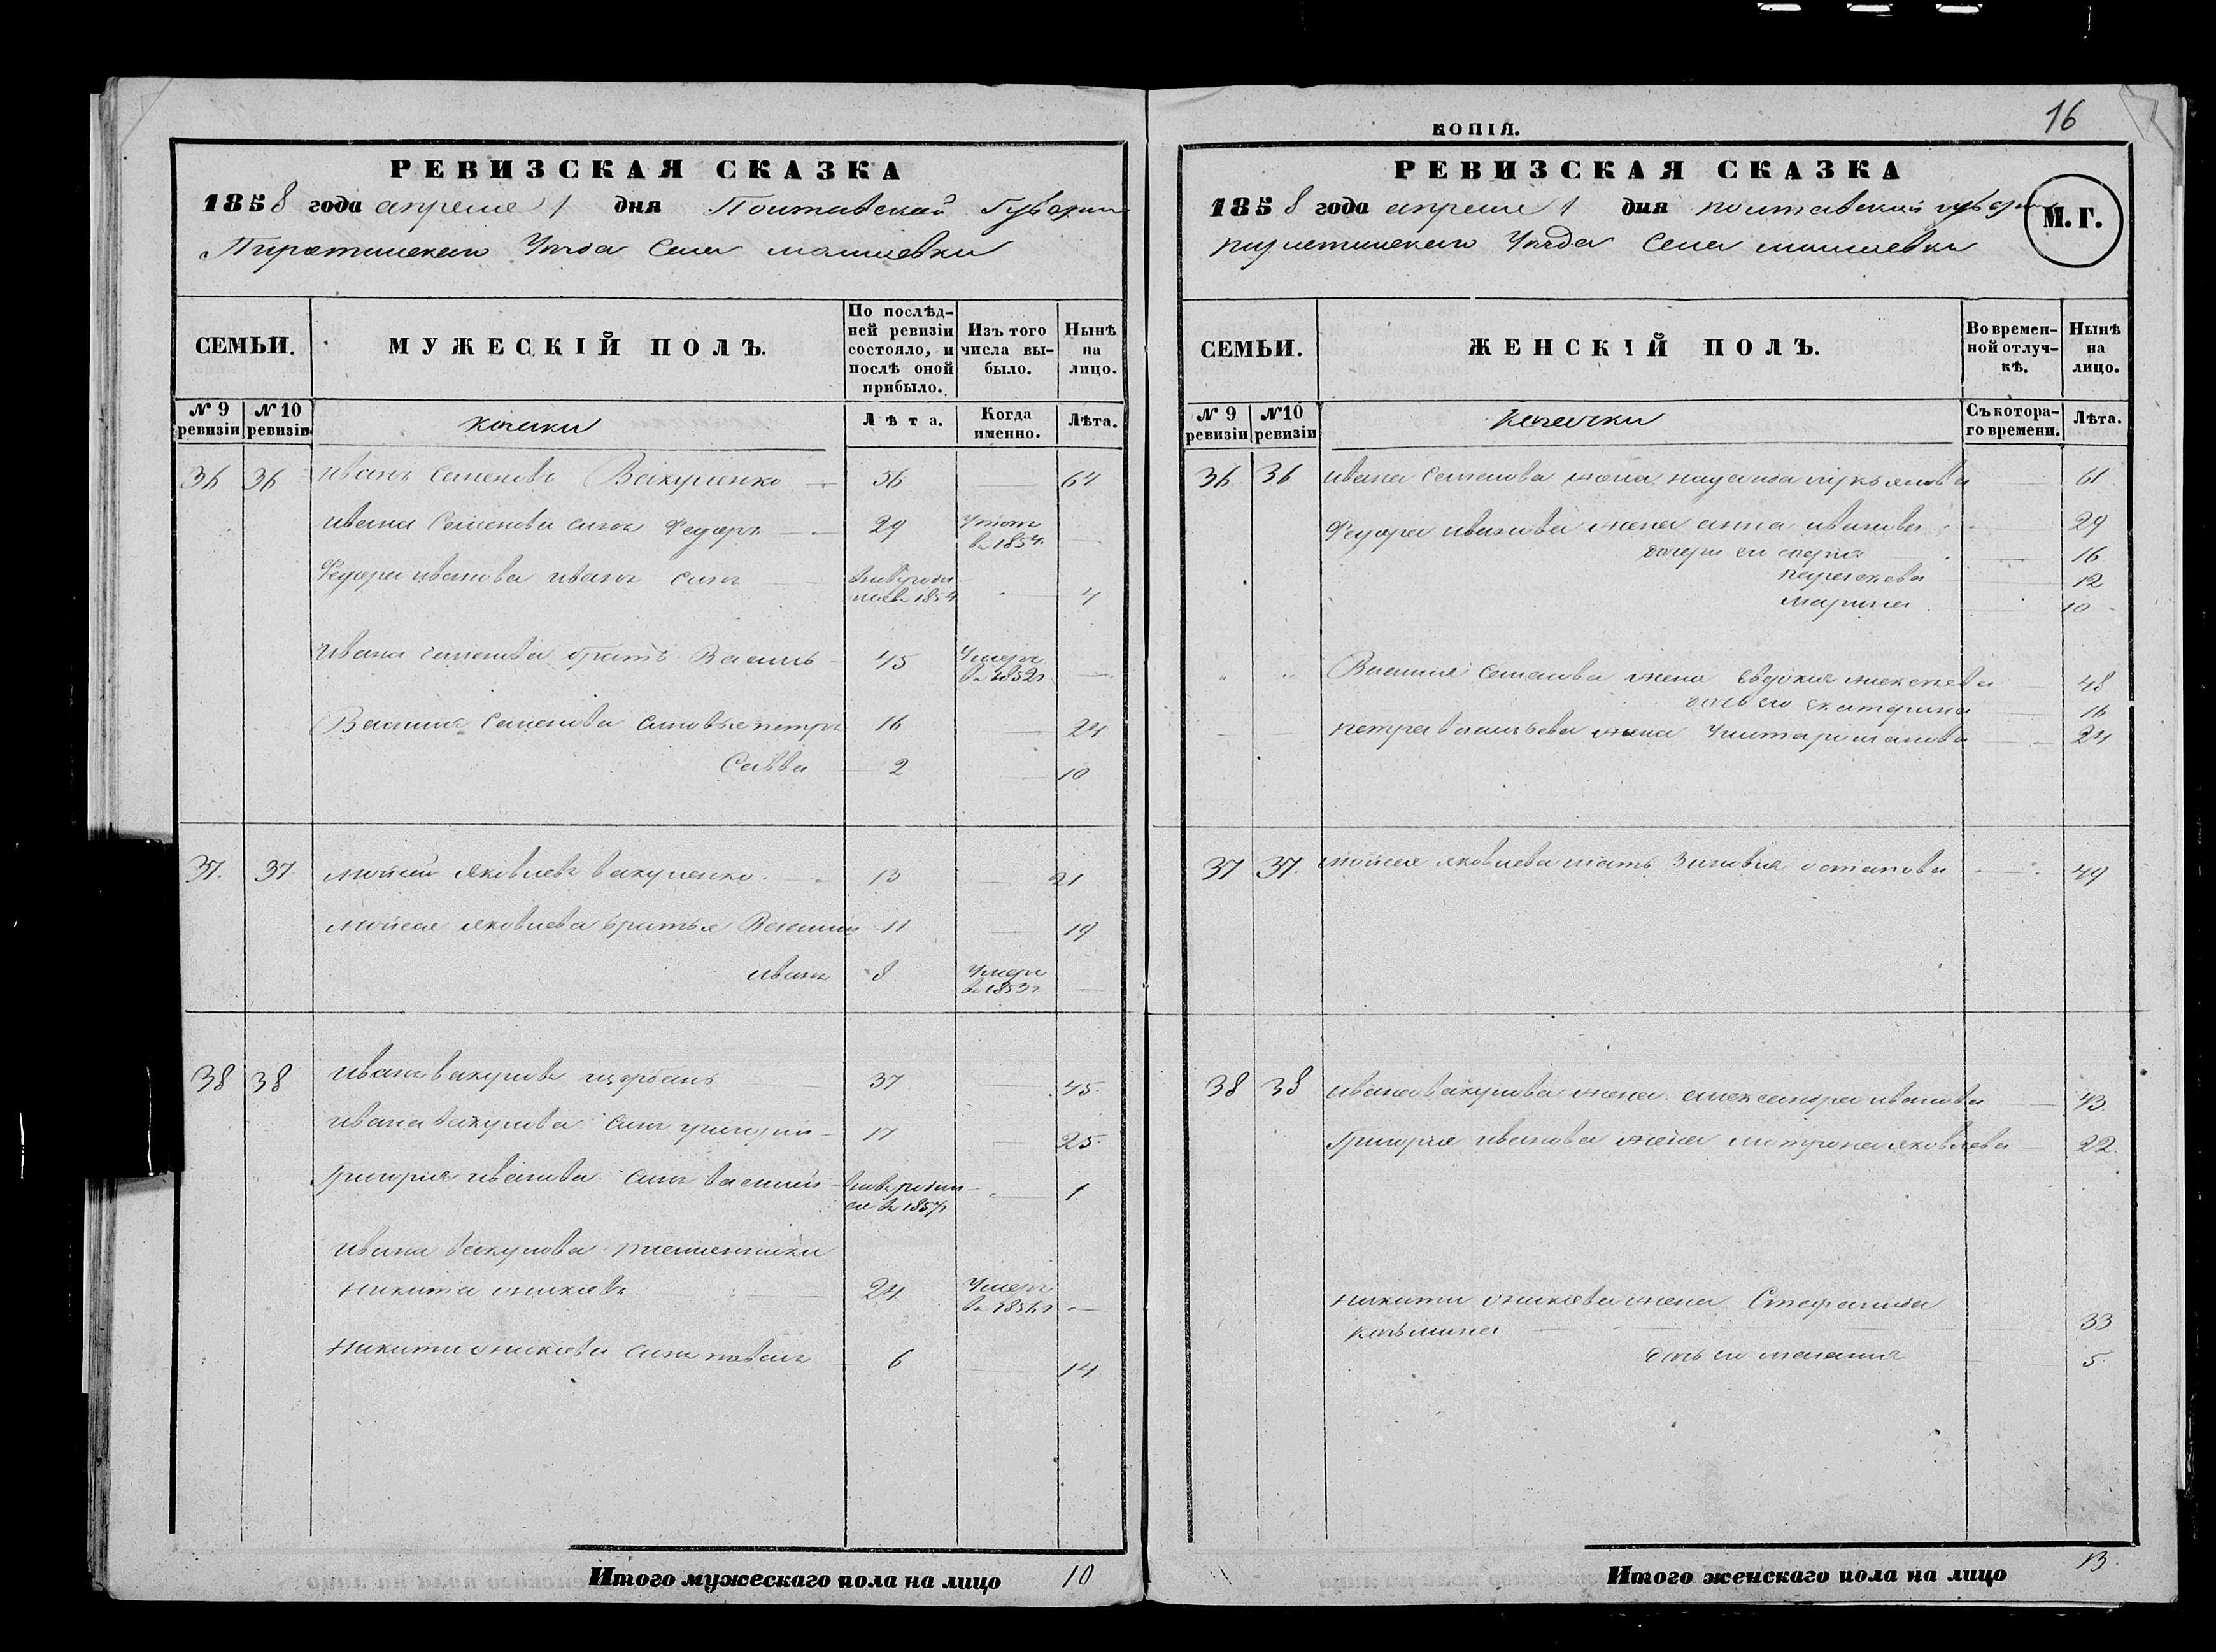 РЕВИЗСКАЯ СКАЗКА
1858 года апреля 1 дня Полтавской Губернии
Пирятинскаго Уезда Села
СЕМЬИ.
МУЖЕСКІЙ ПОЛЪ.
По послѣд-
ней ревизіи
состояло, и
послѣ оной
прибыло.
Изъ того
числа вы-
было.
Нынѣ
на
лицо.
№ 9
ревизіи
№ 10
ревизіи
козаки
Лѣта.
Когда
именно.
Лѣта.
36 36 Иванъ Семеновъ Вакуленко 56 64
Ивана Семенова сынъ Федоръ 29
в 1854
Федора Иванова Иванъ сынъ
1854 4
Ивана Семенова братъ Василь 45 Умеръ
в 1852г
Василия Семенова сыновья Петръ 16 24
Савва 2 10
37. 37 Мойсей Яковлевъ Вакуленко 13 21
Мойсея Яковлева братья Василий 11 19
Иванъ 8 Умеръ
в 1853г
38 38 Иванъ Вакуловъ Щербань 37 45
Ивана Вакулова сынъ Григорий 17 25
Григория Иванова сынъ Василий 1
1857г
Ивана Вакулова племянники
Никита 24 Умеръ
в 1856г
Никиты сынъ Павелъ 6 14
Итого мужескаго пола на лицо 10
КОПІЯ.
16
РЕВИЗСКАЯ СКАЗКА
1858 года апреля 1 дня Полтавской Губернии
Пирятинскаго Уезда Села
М. Г.
СЕМЬИ.
ЖЕНСКІЙ ПОЛЪ.
Во времен-
ной отлуч-
кѣ.
Нынѣ
на
лицо.
№ 9
ревизіи
№ 10
ревизіи
козачки
Съ котора-
го времени.
Лѣта.
36 36 Ивана Семенова жена 61
Федора Иванова жена Анна Иванова 29
дочери его Мария 16
12
Марина 10
Василия Семенова жена Евдокия Алексеева 48
дочь его Екатерина 16
Петра Васильева жена 24
37 37. Мойсея Яковлева мать Зиновия Остапова 49
38 38 Ивана Вакулова жена Александра Иванова 43
Григория Иванова жена Мотрона Яковлева 22
Никиты жена Стефанида
Козьмина 33
дочь его Мелания 5
Итого женскаго пола на лицо 13